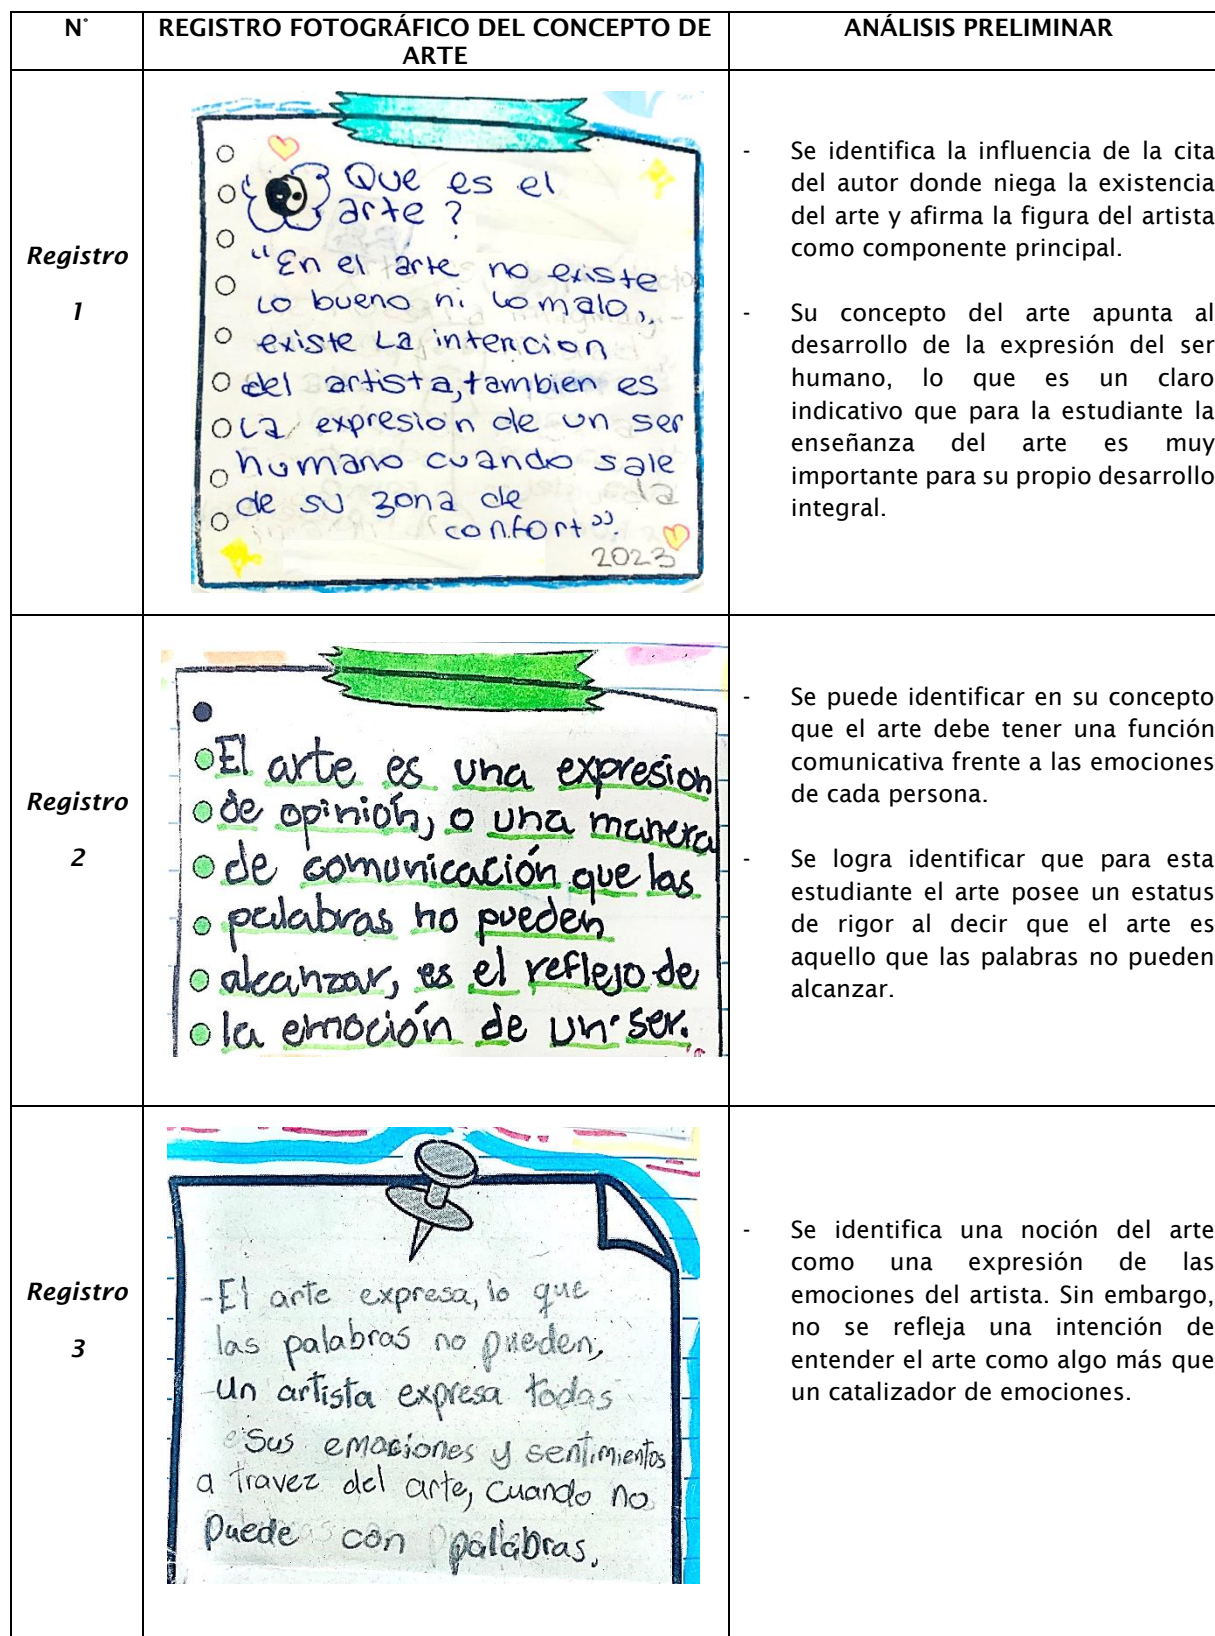 N°
REGISTRO FOTOGRÁFICO DEL CONCEPTO DE
ARTE
ANÁLISIS PRELIMINAR
Registro
1
Que es el
arte ?
"En el arte no existe
lo bueno ni lo malo,,
existe La intencion
del artista, tambien es
La expresion de un ser
humano cuando sale
de su zona de
confort".
2023
- Se identifica la influencia de la cita
del autor donde niega la existencia
del arte y afirma la figura del artista
como componente principal.
- Su concepto del arte apunta al
desarrollo de la expresión del ser
humano, lo que es un claro
indicativo que para la estudiante la
enseñanza del arte es muy
importante para su propio desarrollo
integral.
Registro
2
El arte es una expresion
de opinión, o una manera
de comunicación que las
palabras no pueden
alcanzar, es el reflejo de
la emoción de un ser.
- Se puede identificar en su concepto
que el arte debe tener una función
comunicativa frente a las emociones
de cada persona.
- Se logra identificar que para esta
estudiante el arte posee un estatus
de rigor al decir que el arte es
aquello que las palabras no pueden
alcanzar.
Registro
3
-El arte expresa, lo que
las palabras no pueden,
un artista expresa todas
sus emociones y sentimientos
a travez del arte, cuando no
puede con palabras.
- Se identifica una noción del arte
como una expresión de las
emociones del artista. Sin embargo,
no se refleja una intención de
entender el arte como algo más que
un catalizador de emociones.